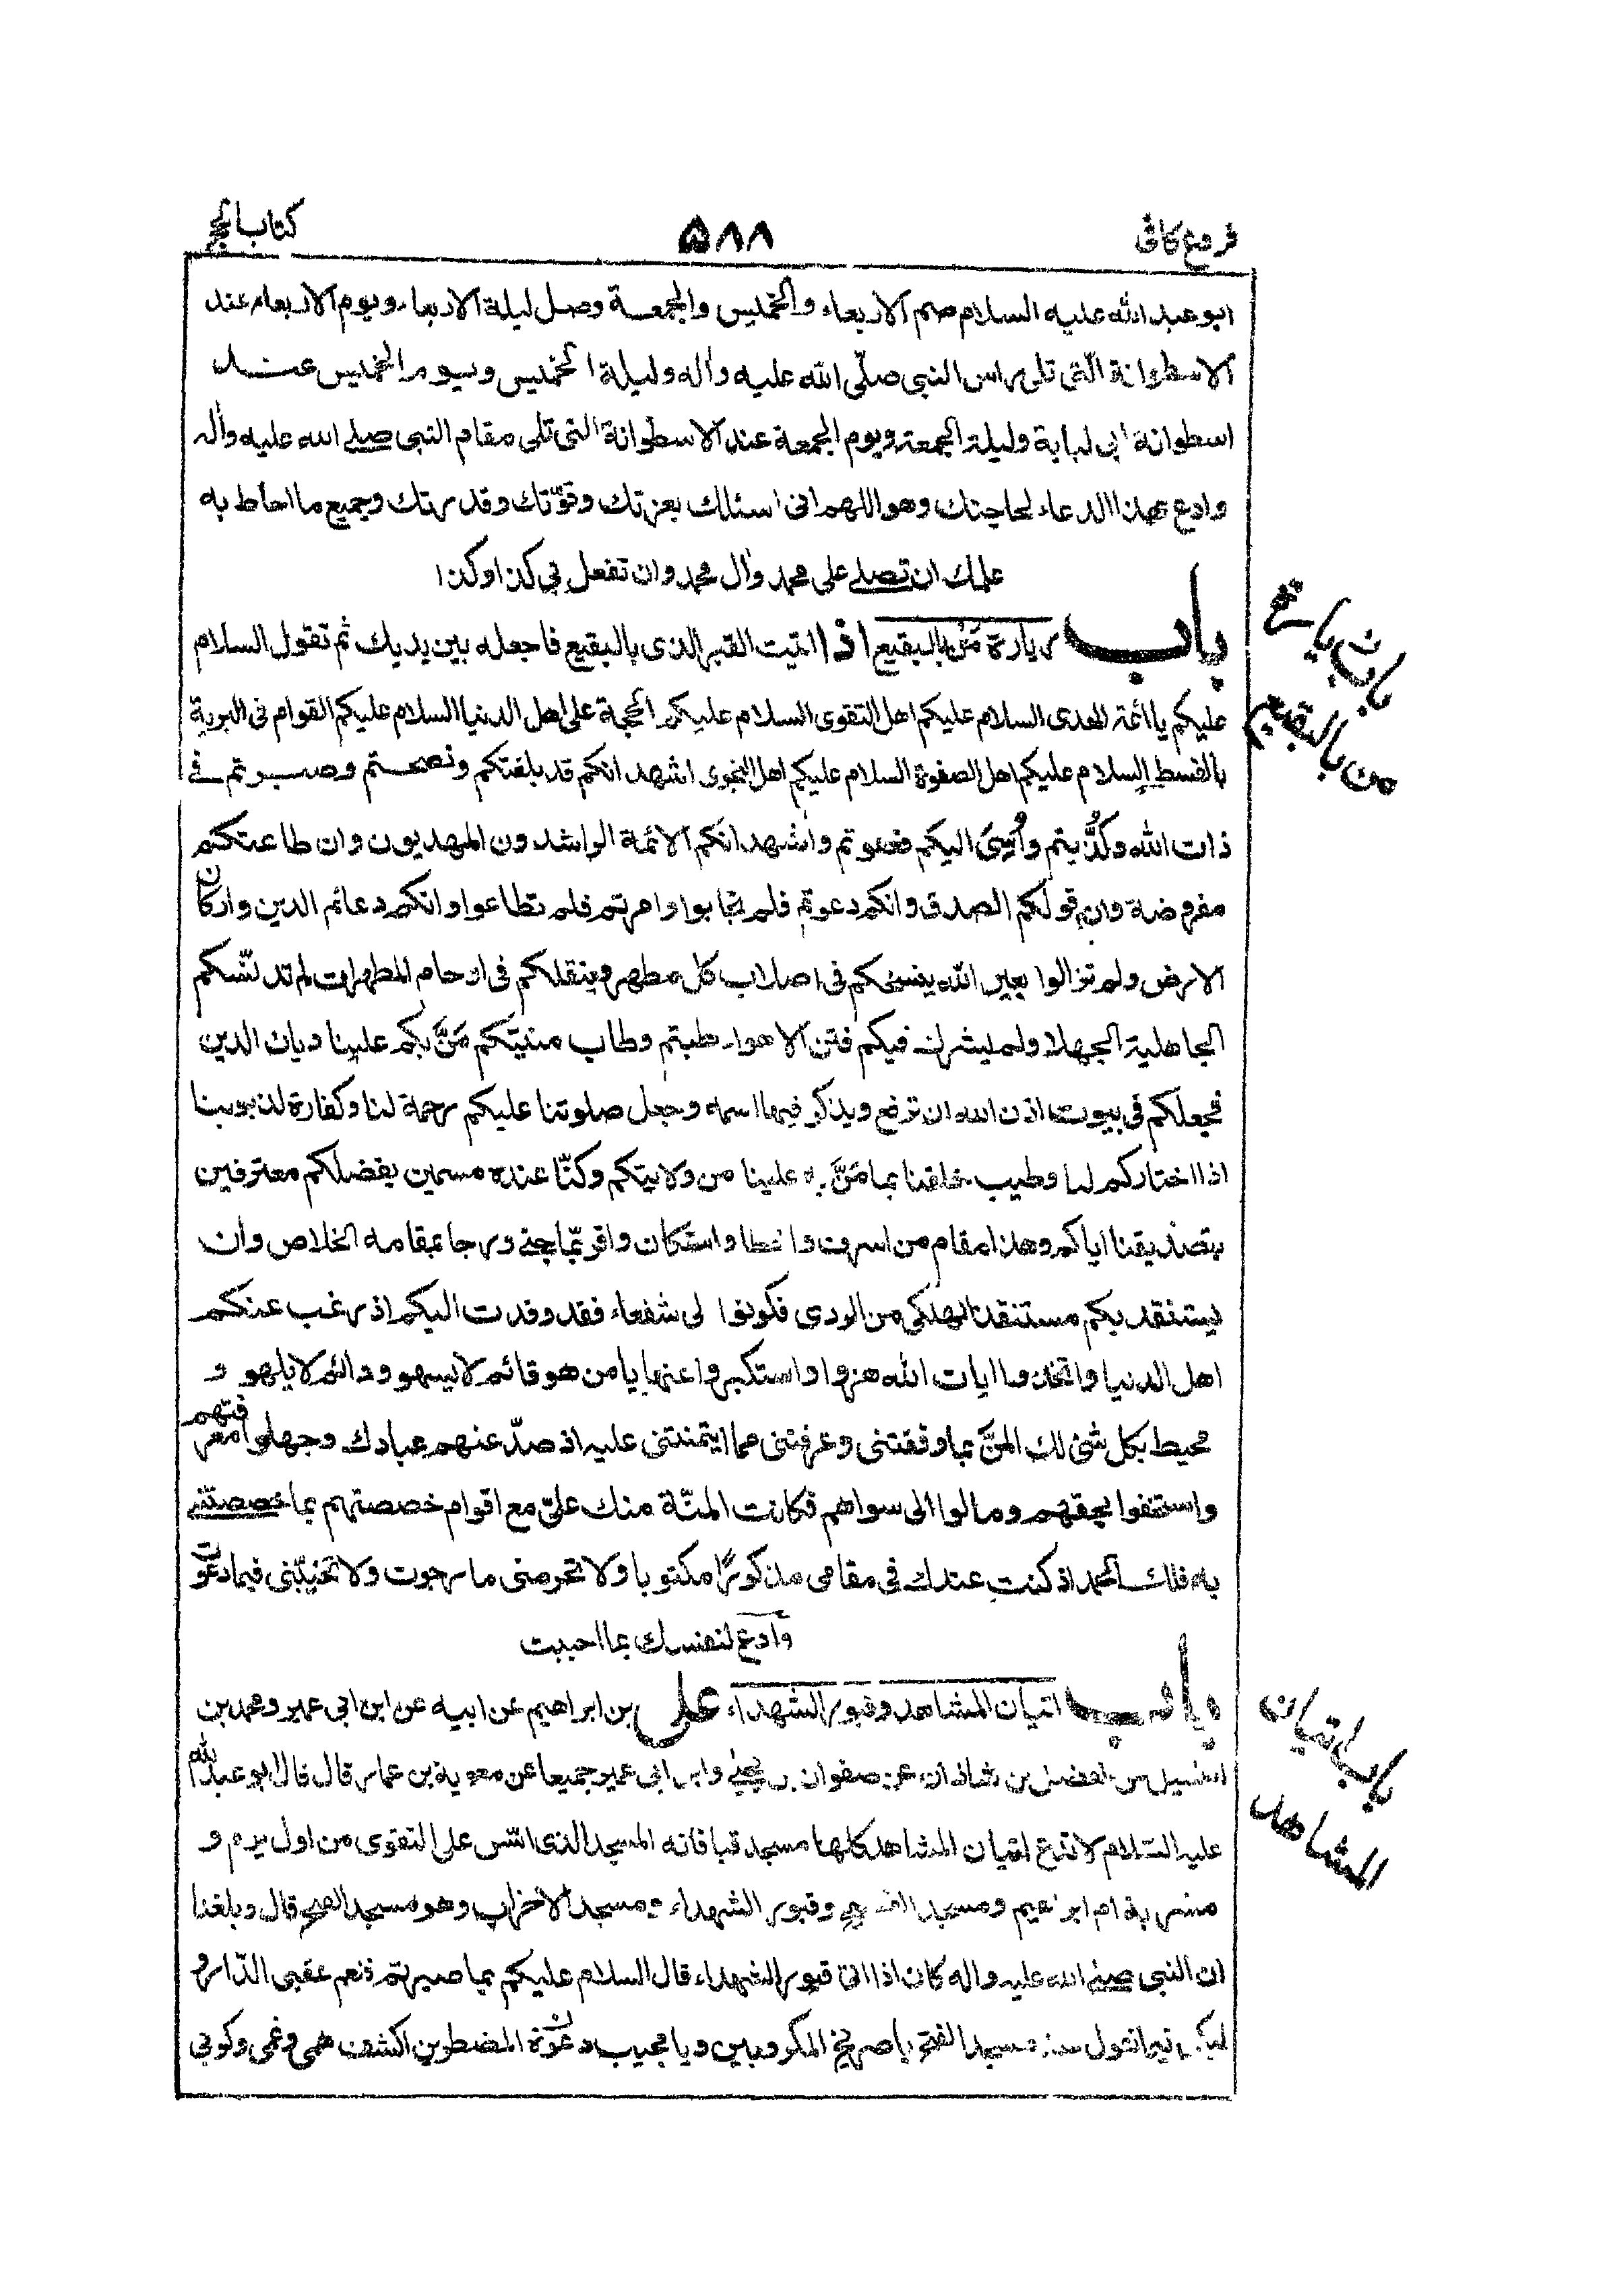 فروع كافى
۵۸۸
كتاب الحج
ابو عبد الله عليه السلام صم الاربعاء والخميس والجمعة وصل ليلة الاربعاء ويوم الاربعاء عند
الاسطوانة التى تلى راس النبى صلّى الله عليه واله وليلة الخميس ويوم الخميس عند
اسطوانة ابى لبابة وليلة الجمعة ويوم الجمعة عند الاسطوانة التى تلى مقام النبى صلى الله عليه واله
وادع بهذا الدعاء لحاجتك وهو اللهم انى اسئلك بعزتك وقوّتك وقدرتك وجميع ما احاط به
علمك ان تصلى على محمد وال محمد وان تفعل بى كذا وكذا
باب زيارة مَن بالبقيع اذا اتيت القبر الذى بالبقيع فاجعله بين يديك ثم تقول السلام
عليكم يا ائمة الهدى السلام عليكم اهل التقوى السلام عليكم الحجة على اهل الدنيا السلام عليكم القوام فى البرية
بالقسط السلام عليكم اهل الصفوة السلام عليكم اهل النجوى اشهد انكم قد بلغتكم ونصحتم وصبرتم فى
ذات الله وكُذّبتم وأُسِىَ اليكم فعفوتم واشهد انكم الائمة الراشدون المهديون وان طاعتكم
مفروضة وان قولكم الصدق وانكم دعوتم فلم تجابوا وامرتم فلم تطاعوا وانكم دعائم الدين واركان
الارض ولم تزالوا بعين الله ينسخكم فى اصلاب كل مطهر وينقلكم فى ارحام المطهرات لم تدنّسكم
الجاهلية الجهلاء ولم يشرك فيكم فتن الاهواء طبتم وطاب منبتكم مَنَّ بكم علينا ديان الدين
فجعلكم فى بيوت اذن الله ان ترفع ويذكر فيها اسمه وجعل صلوتنا عليكم رحمة لنا وكفارة لذنوبنا
اذا اختاركم لنا وطيب خلقنا بما مَنَّ به علينا من ولايتكم وكنّا عنده مسمين بفضلكم معترفين
بتصديقنا اياكم وهذا مقام من اسرف واخطا واستكان واقر بما جنى ورجا بمقامه الخلاص وان
يستنقذ بكم مستنقذ الهلكى من الردى فكونوا لى شفعاء فقد وفدت اليكم اذ رغب عنكم
اهل الدنيا واتخذوا ايات الله هزوا واستكبروا عنها يا من هو قائم لا يسهو ودائم لا يلهو و
محيط بكل شئ لك المنّ بما وفقتنى وعرفتنى مما ايتمنتنى عليه اذ صدّ عنهم عبادك وجهلوا معرفتهم
واستخفوا بحقهم ومالوا الى سواهم فكانت المنّة منك علىّ مع اقوام خصصتهم بما خصصتنى
به فلك الحمد اذ كنت عندك فى مقامى مذكورًا مكتوبا ولا تحرمنى ما رجوت ولا تخيّبنى فيما دعوت
وادع لنفسك بما احببت
باب اتيان المشاهد وقبور الشهداء على بن ابراهيم عن ابيه عن ابن ابى عمير ومحمد بن
اسمعيل عن الفضل بن شاذان عن صفوان بن يحيى وابن ابى عمير جميعا عن معوية بن عمار قال قال ابو عبد الله
عليه السّلام لا تدع اتيان المشاهد كلها مسجد قبا فانه المسجد الذى اسّس على التقوى من اول يوم و
مشربة ام ابراهيم ومسجد الفضيخ وقبور الشهداء ومسجد الاحزاب وهو مسجد الفتح قال وبلغنا
ان النبى صلى الله عليه واله كان اذا اتى قبور الشهداء قال السلام عليكم بما صبرتم فنعم عقبى الدّار و
ليكن فيما تقول عند مسجد الفتح يا صريخ المكروبين ويا مجيب دعوة المضطرين اكشف همى وغمى وكربى
باب زيارة
من بالبقيع
باب اتيان
المشاهد